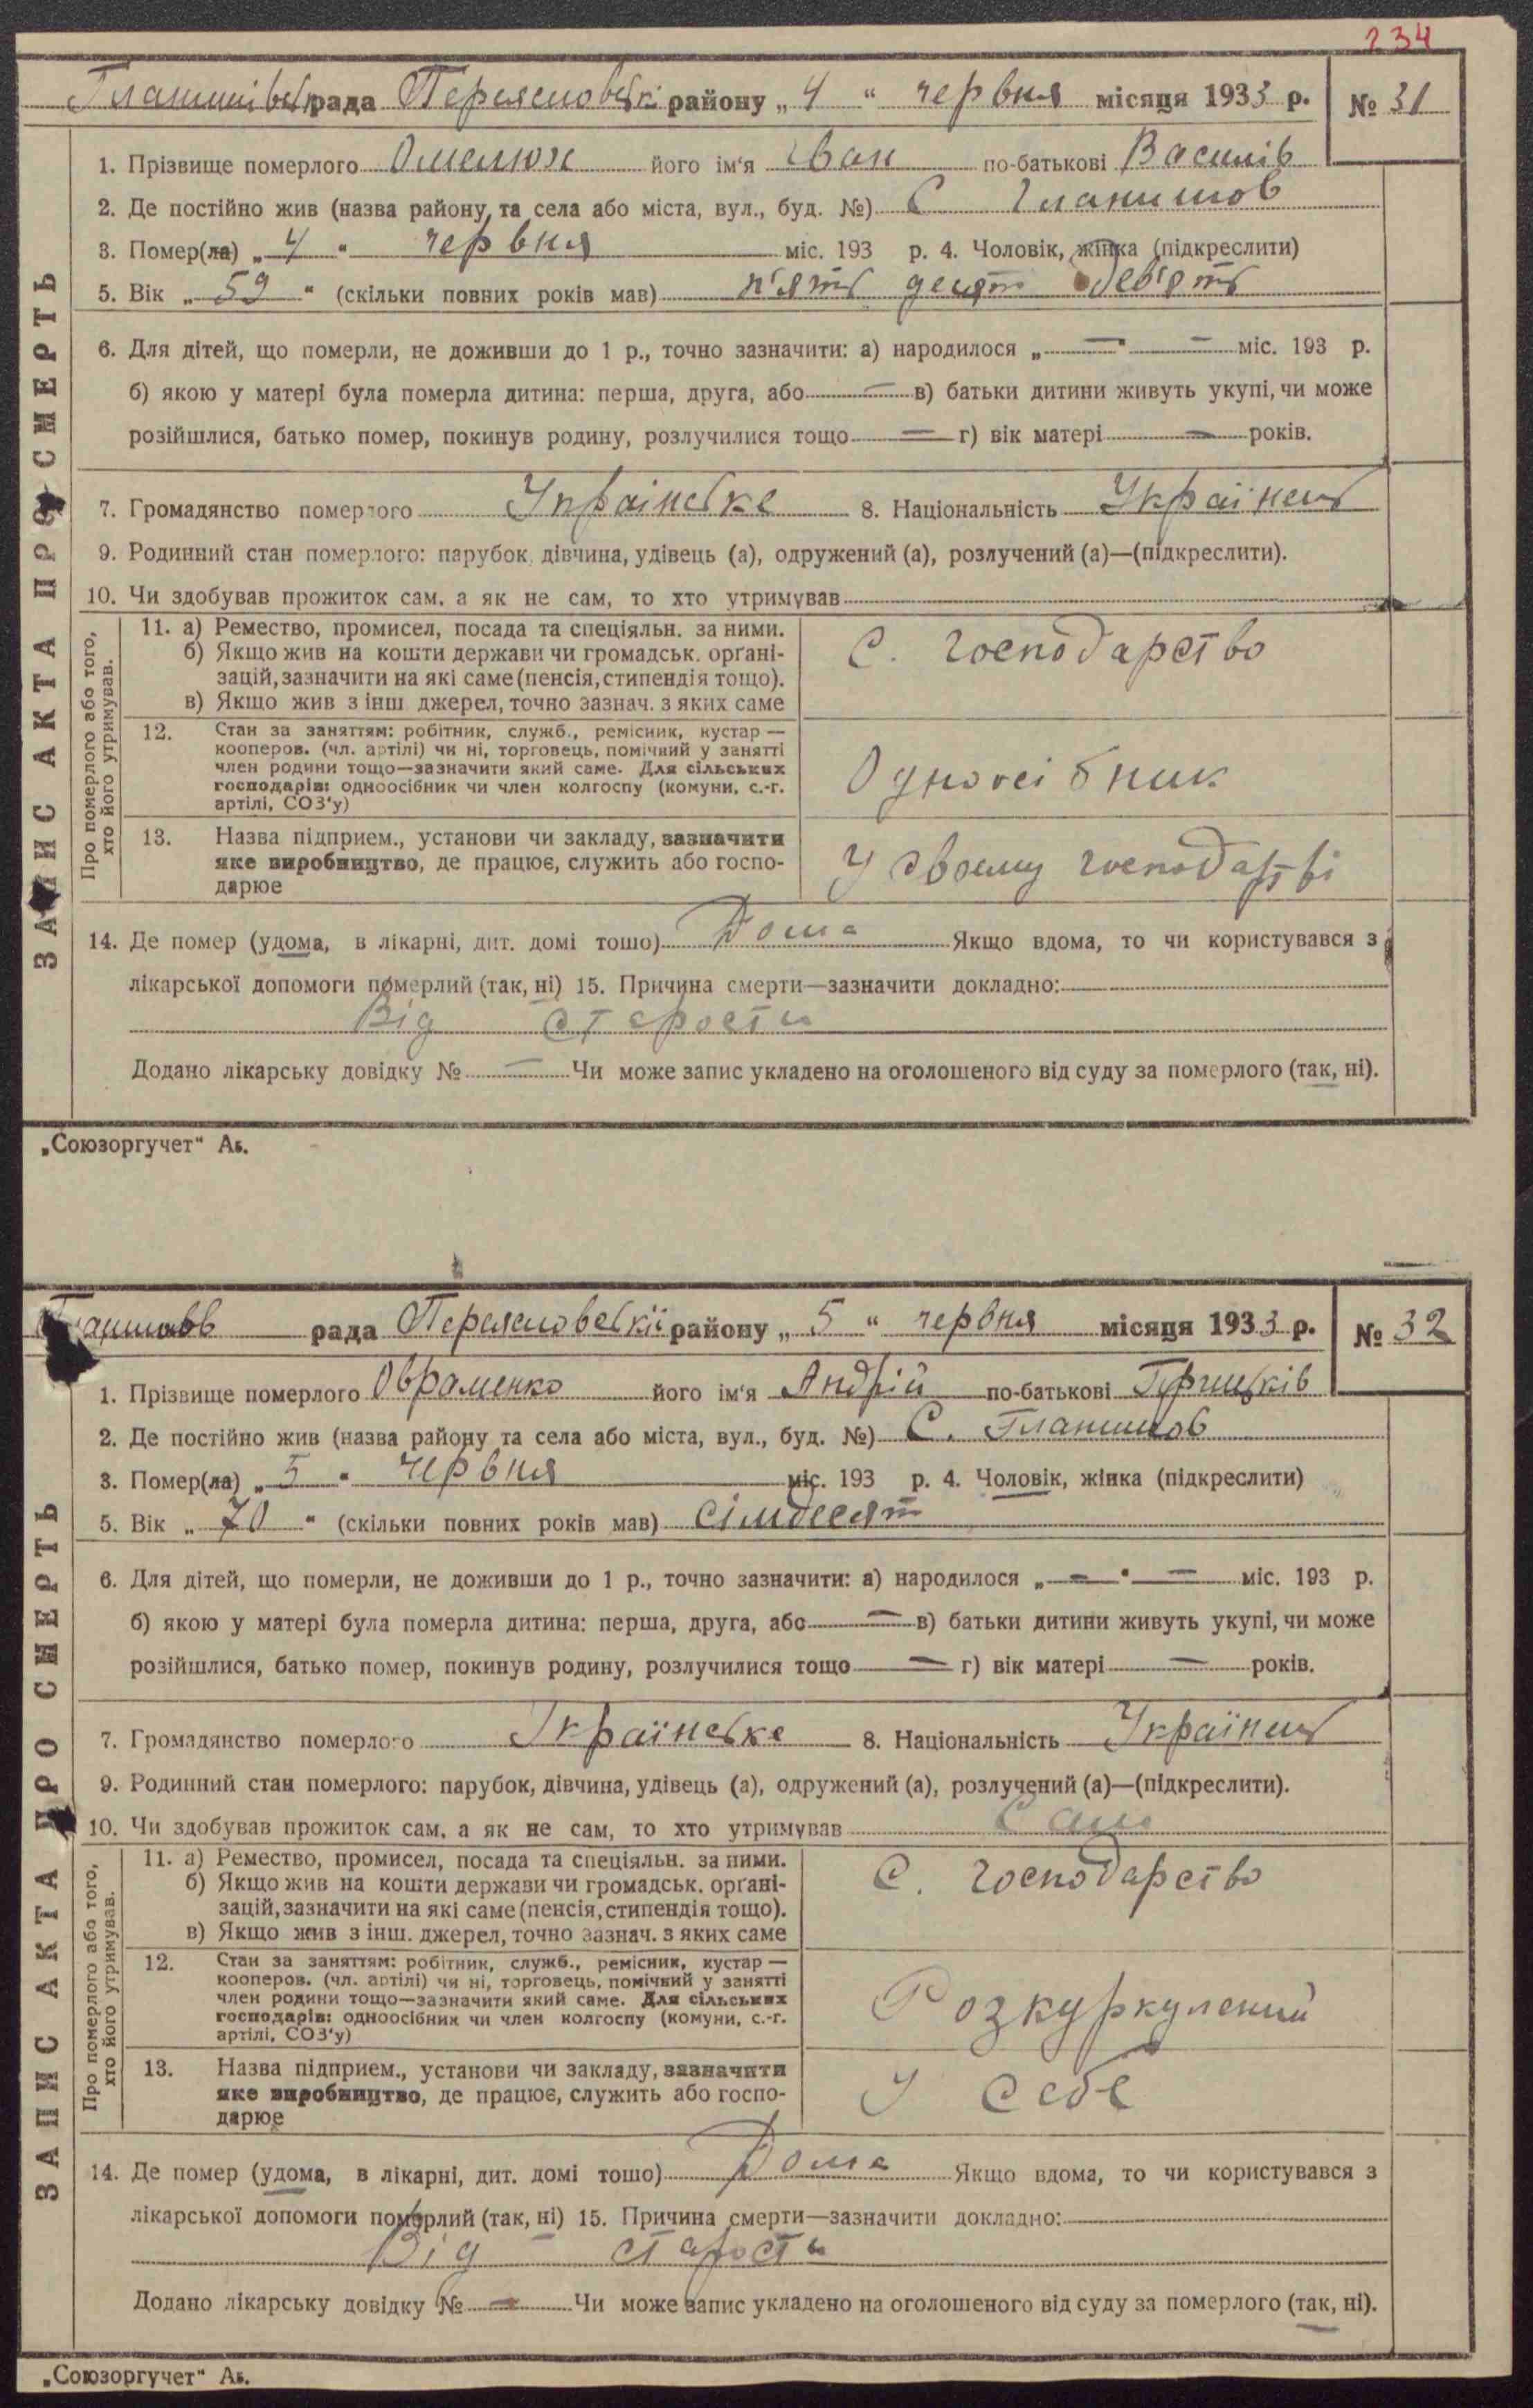 234
рада Переясловські району „ 4 “ червня місяця 1933 р. № 31
1. Прізвище померлого Омелюх його ім‘я Іван по-батькові Василів
2. Де постійно жив (назва району та села або міста, вул., буд. №) С
3. Помер(ла) „ 4 “ червня міс. 193 р. 4. Чоловік, жінка (підкреслити)
5. Вік „ 59 “ (скільки повних років мав) п'ять десят девять
6. Для дітей, що померли, не доживши до 1 р., точно зазначити: а) народилося „ — “ — міс. 193 р.
б) якою у матері була померла дитина: перша, друга, або — в) батьки дитини живуть укупі, чи може
розійшлися, батько помер, покинув родину, розлучилися тощо — г) вік матері — років.
7. Громадянство померлого Українське 8. Національність Українець
9. Родинний стан померлого: парубок, дівчина, удівець (а), одружений (а), розлучений (а)—(підкреслити).
10. Чи здобував прожиток сам, а як не сам, то хто утримував
ЗАПИС АКТА ПРО СМЕРТЬ
Про померлого або того,
хто його утримував.
11. а) Ремество, промисел, посада та спеціяльн. за ними.
б) Якщо жив на кошти держави чи громадськ. орґані-
зацій, зазначити на які саме (пенсія, стипендія тощо).
в) Якщо жив з інш. джерел, точно зазнач. з яких саме
С. господарство
12. Стан за заняттям: робітник, служб., ремісник, кустар —
кооперов. (чл. артілі) чи ні, торговець, помічний у занятті
член родини тощо—зазначити який саме. Для сільських
господарів: одноосібник чи член колгоспу (комуни, с.-г.
артілі, СОЗ‘у)
Одноосібник
13. Назва підприєм., установи чи закладу, зазначити
яке виробництво, де працює, служить або госпо-
дарює
У своему господарві
14. Де помер (удома, в лікарні, дит. домі тощо) Дома Якщо вдома, то чи користувався з
лікарської допомоги померлий (так, ні) 15. Причина смерти—зазначити докладно:
Від старости
Додано лікарську довідку № — Чи може запис укладено на оголошеного від суду за померлого (так, ні).
„Союзоргучет“ Аб.
рада Переясловській району „ 5 “ червня місяця 1933 р. № 32
1. Прізвище померлого Овраменко його ім‘я Андрій по-батькові
2. Де постійно жив (назва району та села або міста, вул., буд. №) С.
3. Помер(ла) „ 5 “ червня міс. 193 р. 4. Чоловік, жінка (підкреслити)
5. Вік „ 70 “ (скільки повних років мав) сімдесят
6. Для дітей, що померли, не доживши до 1 р., точно зазначити: а) народилося „ — “ — міс. 193 р.
б) якою у матері була померла дитина: перша, друга, або — в) батьки дитини живуть укупі, чи може
розійшлися, батько помер, покинув родину, розлучилися тощо — г) вік матері — років.
7. Громадянство померлого Українське 8. Національність Українець
9. Родинний стан померлого: парубок, дівчина, удівець (а), одружений (а), розлучений (а)—(підкреслити).
10. Чи здобував прожиток сам, а як не сам, то хто утримував Сам
ЗАПИС АКТА ПРО СМЕРТЬ
Про померлого або того,
хто його утримував.
11. а) Ремество, промисел, посада та спеціяльн. за ними.
б) Якщо жив на кошти держави чи громадськ. орґані-
зацій, зазначити на які саме (пенсія, стипендія тощо).
в) Якщо жив з інш. джерел, точно зазнач. з яких саме
С. господарство
12. Стан за заняттям: робітник, служб., ремісник, кустар —
кооперов. (чл. артілі) чи ні, торговець, помічний у занятті
член родини тощо—зазначити який саме. Для сільських
господарів: одноосібник чи член колгоспу (комуни, с.-г.
артілі, СОЗ‘у)
Розкуркулений
13. Назва підприєм., установи чи закладу, зазначити
яке виробництво, де працює, служить або госпо-
дарює
У себе
14. Де помер (удома, в лікарні, дит. домі тощо) Дома Якщо вдома, то чи користувався з
лікарської допомоги померлий (так, ні) 15. Причина смерти—зазначити докладно:
Від старости
Додано лікарську довідку № — Чи може запис укладено на оголошеного від суду за померлого (так, ні).
„Союзоргучет“ Аб.